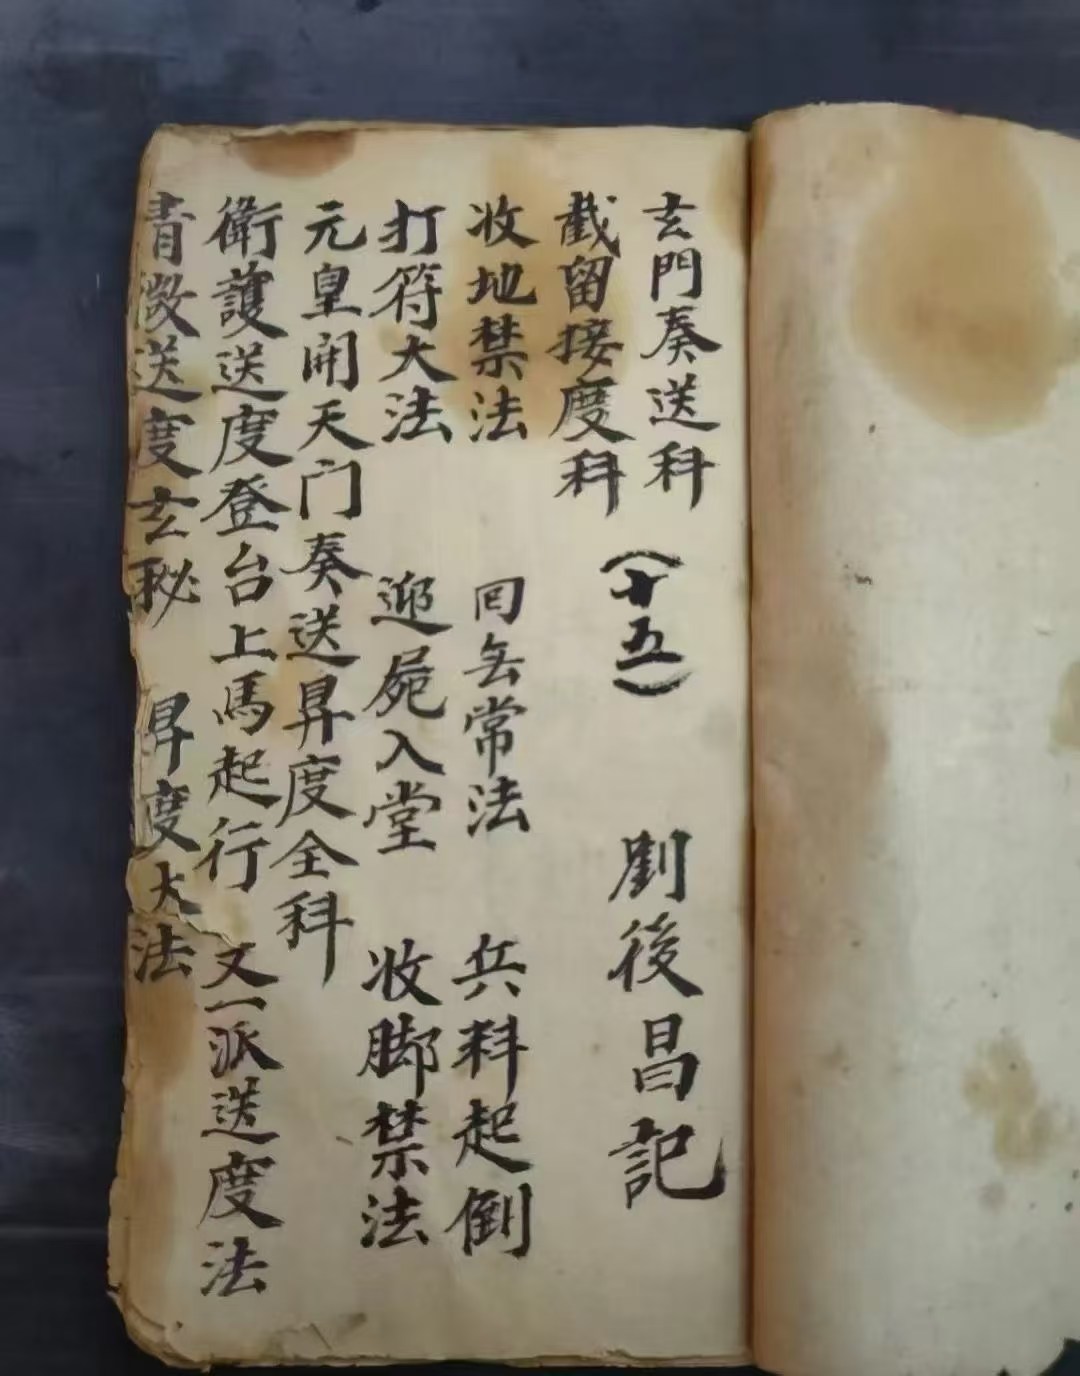 玄門奏送科
截留接度科 (十五) 劉後昌記
收地禁法 回無常法 兵料起倒
打符大法 迎屍入堂 收脚禁法
元皇開天门奏送昇度全科
衛護送度登台上馬起行 又一派送度法
青微送度玄秘 昇度大法